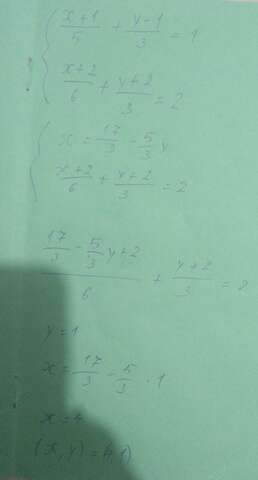 x+1/5 + y-1/3 = 1
x+2/6 + y+2/3 = 2
x = 17/3 - 5/3 y
x+2/6 + y+2/3 = 2
17/3 - 5/3 y+2/6 + y+2/3 = 2
y = 1
x = 17/3 - 5/3 · 1
x = 4
(x, y) = (4, 1)